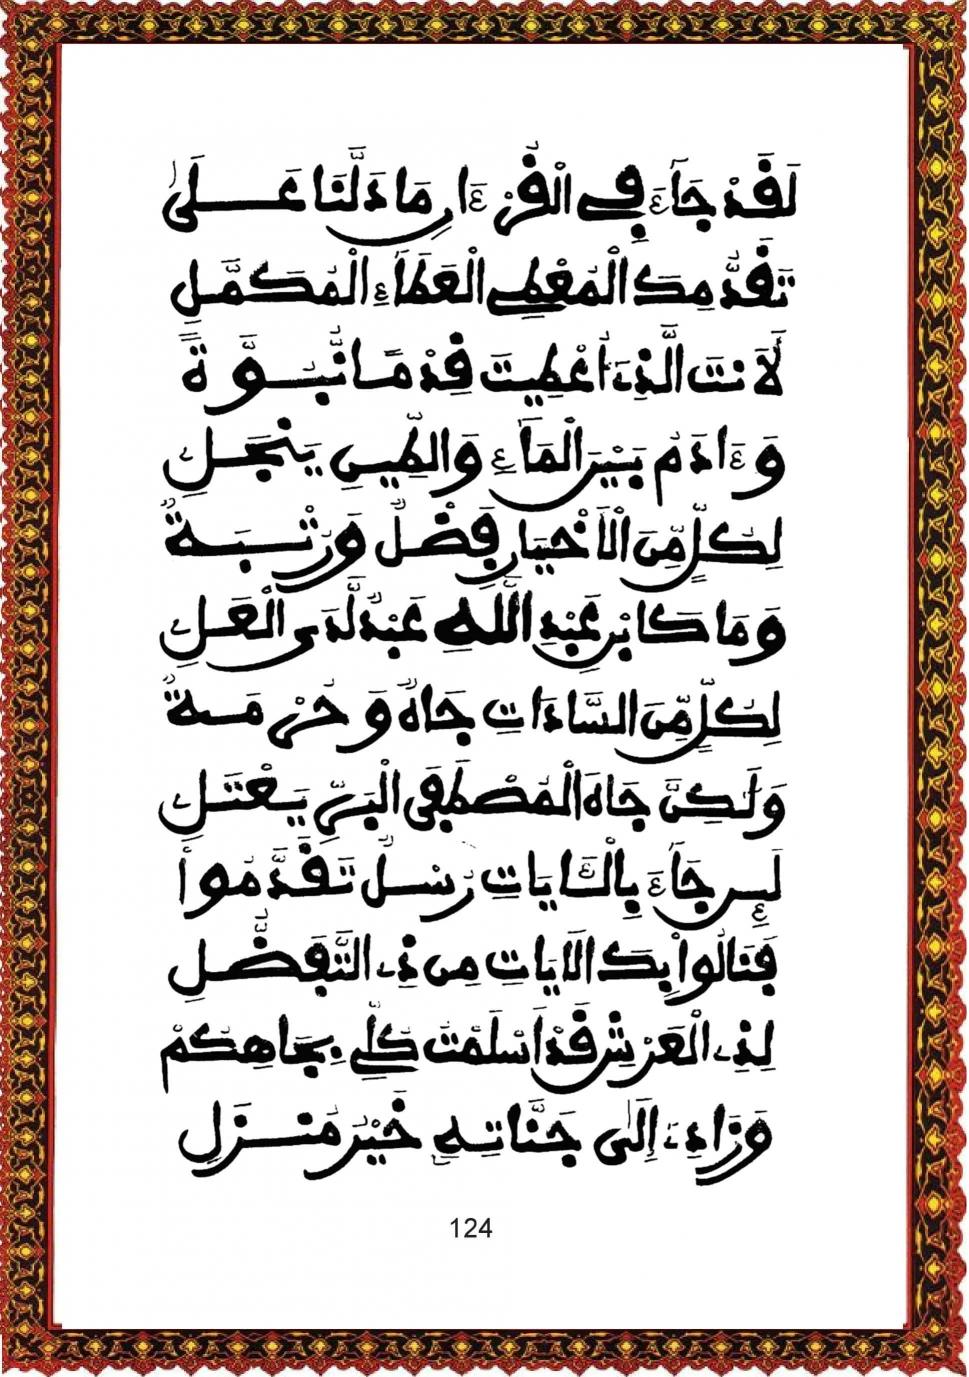 لَقَدْ جَآءَ فِي الْقُرْءَانِ مَا دَلَّنَا عَلَىٰ
تَقَدُّمِكَ الْمُعْطِي الْعَطَآءِ الْمُكَمَّلِ
لَأَنتَ الَّذِي أُعْطِيتَ قِدْمًا نُّبُوَّةً
وَءَادَمُ بَيْنَ الْمَآءِ وَالطِّينِ يَنجَلِ
لِكُلٍّ مِّنَ الْأَخْيَارِ فَضْلٌ وَرُتْبَةٌ
وَمَا كَابْنِ عَبْدِ اللَّهِ عَبْدٌ لَّدَى الْعَلِ
لِكُلٍّ مِّنَ السَّادَاتِ جَاهٌ وَحُرْمَةٌ
وَلَٰكِنَّ جَاهَ الْمُصْطَفَى الْبَرِّ يَعْتَلِ
لَئِن جَآءَ بِالْآيَاتِ رُسْلٌ تَقَدَّمُوا
فَنَالُوا بِكَ الْآيَاتِ مِن ذِي التَّفَضُّلِ
لِذِي الْعَرْشِ قَدْ أَسْلَمْتُ كُلِّي بِجَاهِكُمْ
وَزَادِي إِلَى جَنَّاتِهِ خَيْرُ مَنزِلِ
124